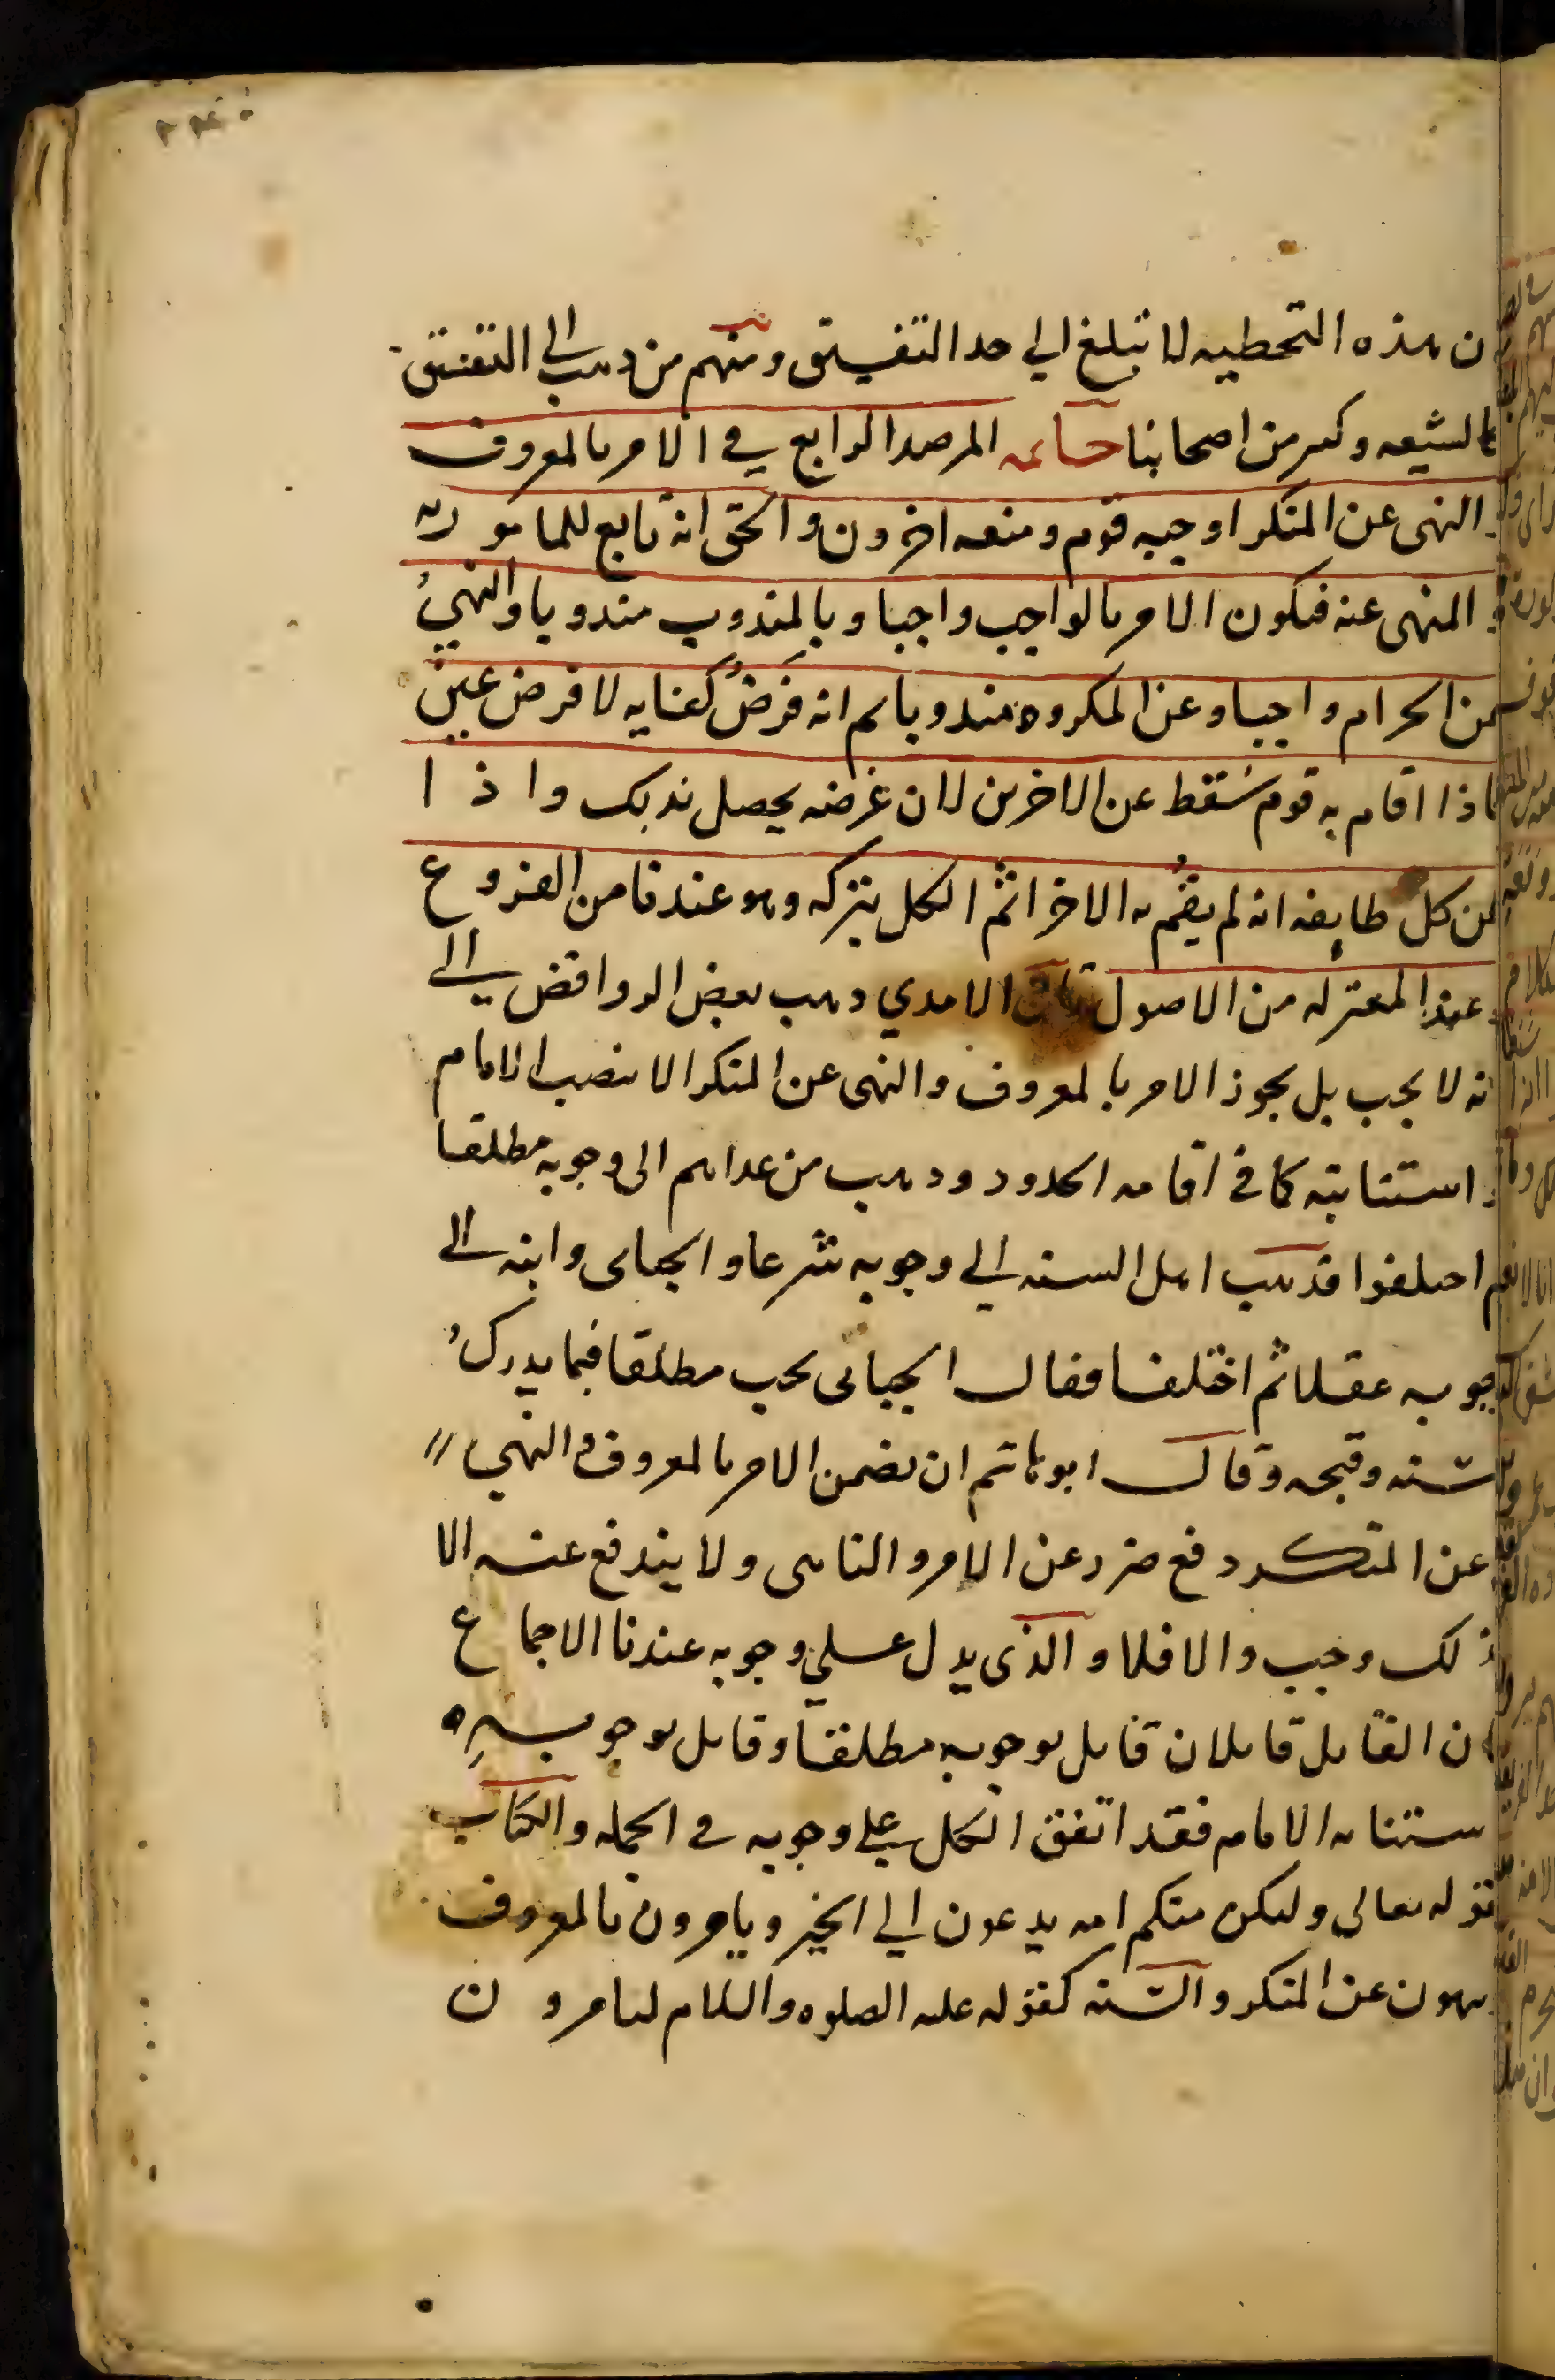 ن هذه التخطيه لا تبلغ الي حد التفسيق ومنهم من ذهب الى التفسيق
كالشيعه وكثير من اصحابنا خاتمه المرصد الرابع في الامر بالمعروف
و النهى عن المنكر اوجبه قوم ومنعه اخرون والحق انه تابع للمامور به
و المنهى عنه فيكون الامر بالواجب واجبا وبالمندوب مندوبا والنهيُ
عن الحرام واجبا وعن المكروه مندوبا ثم انه فرضُ كفايه لا فرض عين
فاذا اقام به قوم سَقط عن الاخرين لان غرضه يحصل بذلك واذا
ظن كل طايفه انه لم يقُم به الاخر اثم الكل بتركه وهو عندنا من الفروع
و عند المعتزله من الاصول قال الامدي ذهب بعض الروافض الى
انه لا يجب بل يجوز الامر بالمعروف والنهى عن المنكر الا بنصب الامام
و استنابته كما في اقامه الحدود وذهب من عداهم الى وجوبه مطلقا
ثم اختلفوا فذهب اهل السنه الي وجوبه شرعا والجبائى وابنه الى
وجوبه عقلا ثم اختلفا فقال الجبائى يجب مطلقا فيما يدركُ
حسنه وقبحه وقال ابو هاشم ان تضمن الامر بالمعروف والنهي
عن المنكر دفع ضرر عن الامر والناهى ولا يندفع عنه الا
بذلك وجب والا فلا والذى يدل علي وجوبه عندنا الاجماع
فان القايل قايلان قايل بوجوبه مطلقا وقايل بوجوبه
ستنابه الامام فقد اتفق الكل على وجوبه في الجمله والكتاب
كقوله تعالى ولتكن منكم امه يدعون الي الخير ويامرون بالمعروف
وينهون عن المنكر والسنه كقوله عليه الصلوه والسلام لتامرون